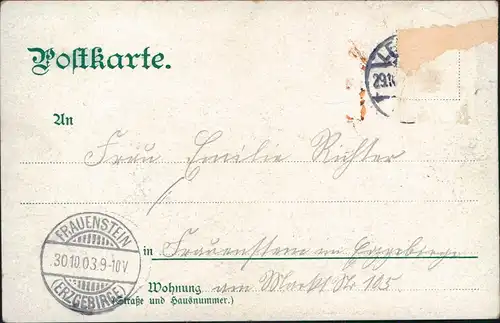 Postkarte.
LE
29.10
An
Frau Emilie Richter
FRAUENSTEIN
30 10.03.9-10V
(ERZGEBIRGE)
in Frauenstein im Erzgebirge
Wohnung am Markt Str 105
(Straße und Hausnummer.)